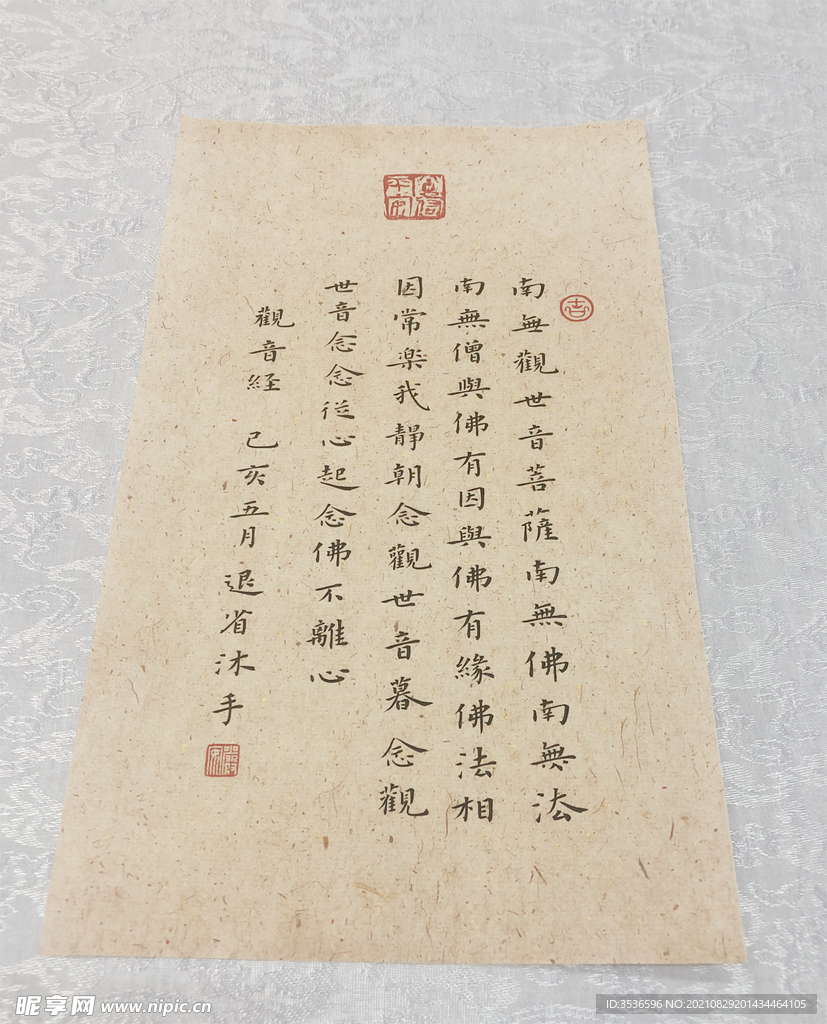 南無觀世音菩薩南無佛南無法
南無僧與佛有因與佛有緣佛法相
因常楽我靜朝念觀世音暮念觀
世音念念從心起念佛不離心
觀音経 己亥五月 退省沐手
吉
昵享网 www.nipic.cn
ID:3536596 NO:20210829201434464105